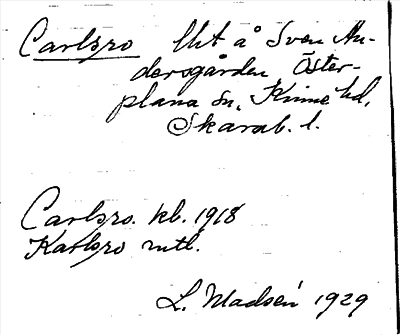 Carlsro lht å Sven An-
dersgården Öster-
plana sn, Kinne hd,
Skarab. l.
Carlsro. kb. 1918
Karlsro mtl.
L. Madsén 1929